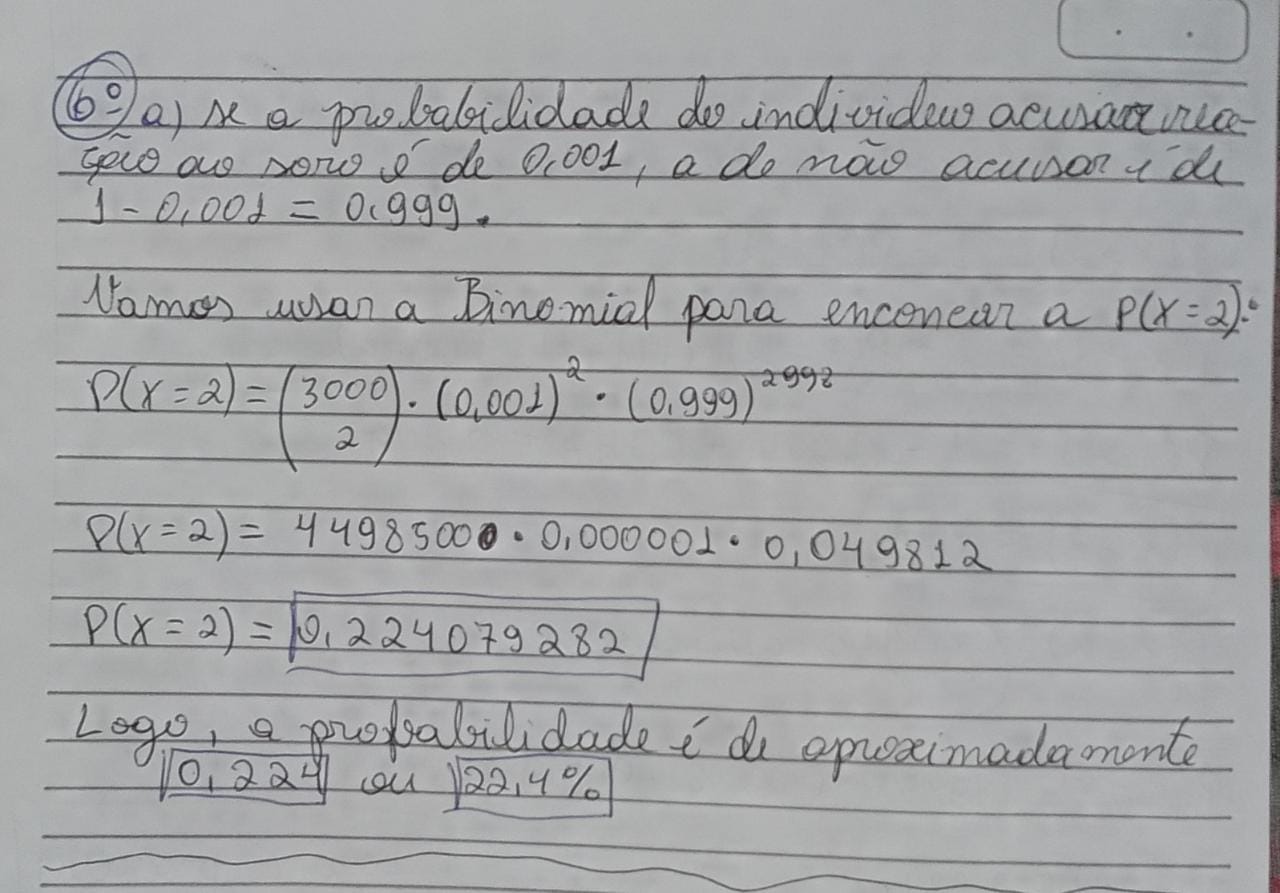 6º a) se a probabilidade do individuo acusar rea-
ção ao soro é de 0,001, a de não acusar é de
1 - 0,001 = 0,999.
Vamos usar a Binomial para enconcar a P(X=2):
P(X=2) = (3000 2) . (0,001)² . (0,999)²⁹⁹⁸
P(X=2) = 44985000 . 0,000001 . 0,049812
P(X=2) = 0,224079282
Logo, a probabilidade é de aproximadamente
0,224 ou 22,4%